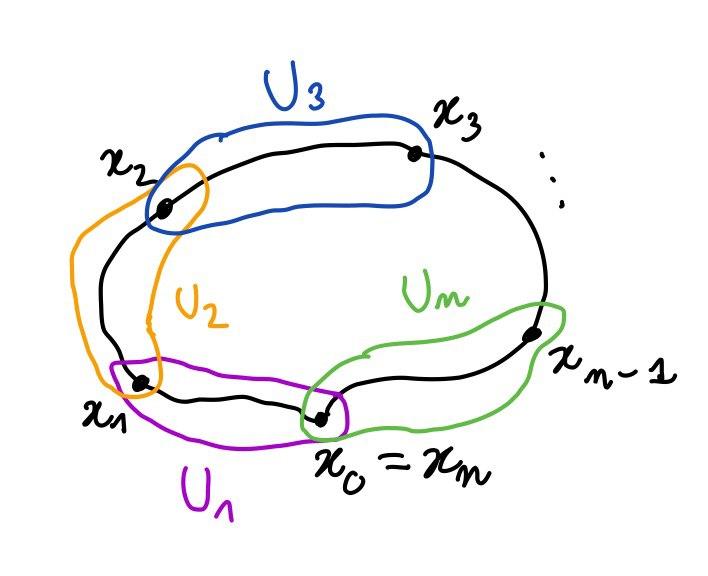 U₃
x₃
x₂
⋱
Uₙ
U₂
xₙ₋₁
x₁
x₀ = xₙ
U₁